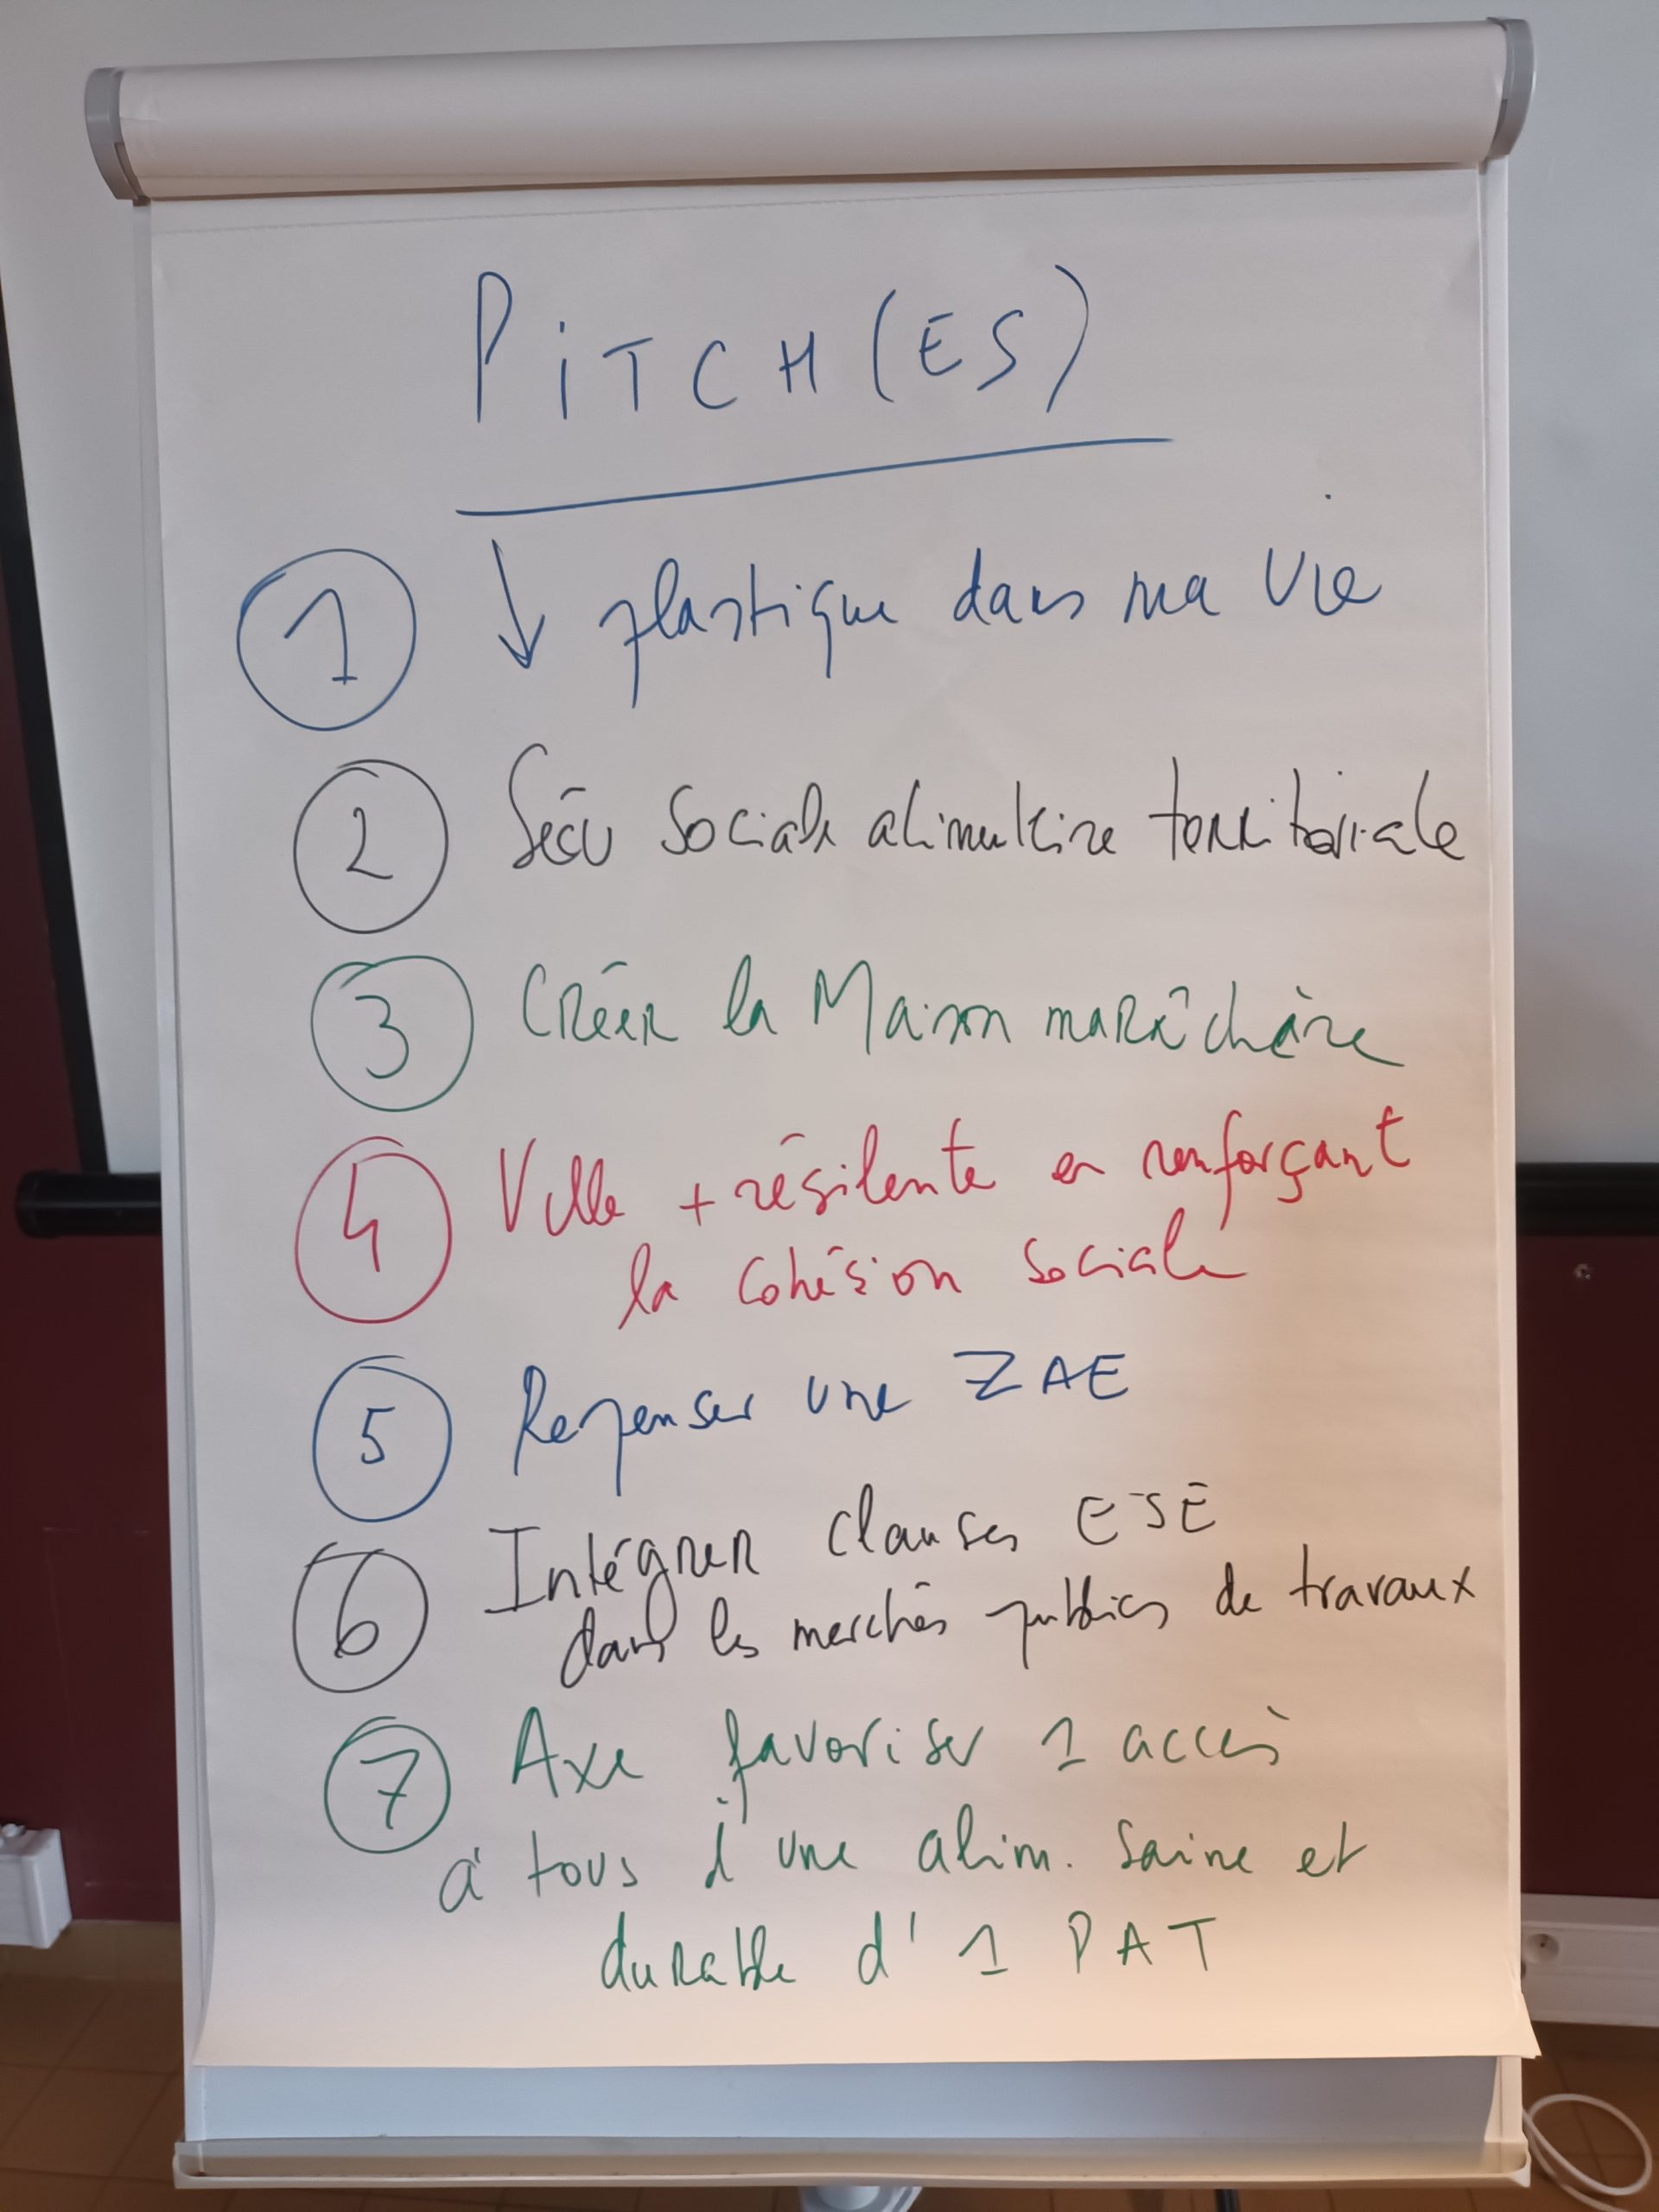 PiTCH(ES)
1 ↓ plastique dans ma vie
2 Sécu Sociale alimentaire territoriale
3 Créer la Maison maraîchère
4 Ville + résilente en renforçant
la cohésion sociale
5 Repenser une ZAE
6 Intégrer clauses ESE
dans les marchés publics de travaux
7 Axe favoriser 1 accès
à tous d'une alim. saine et
durable d'1 PAT